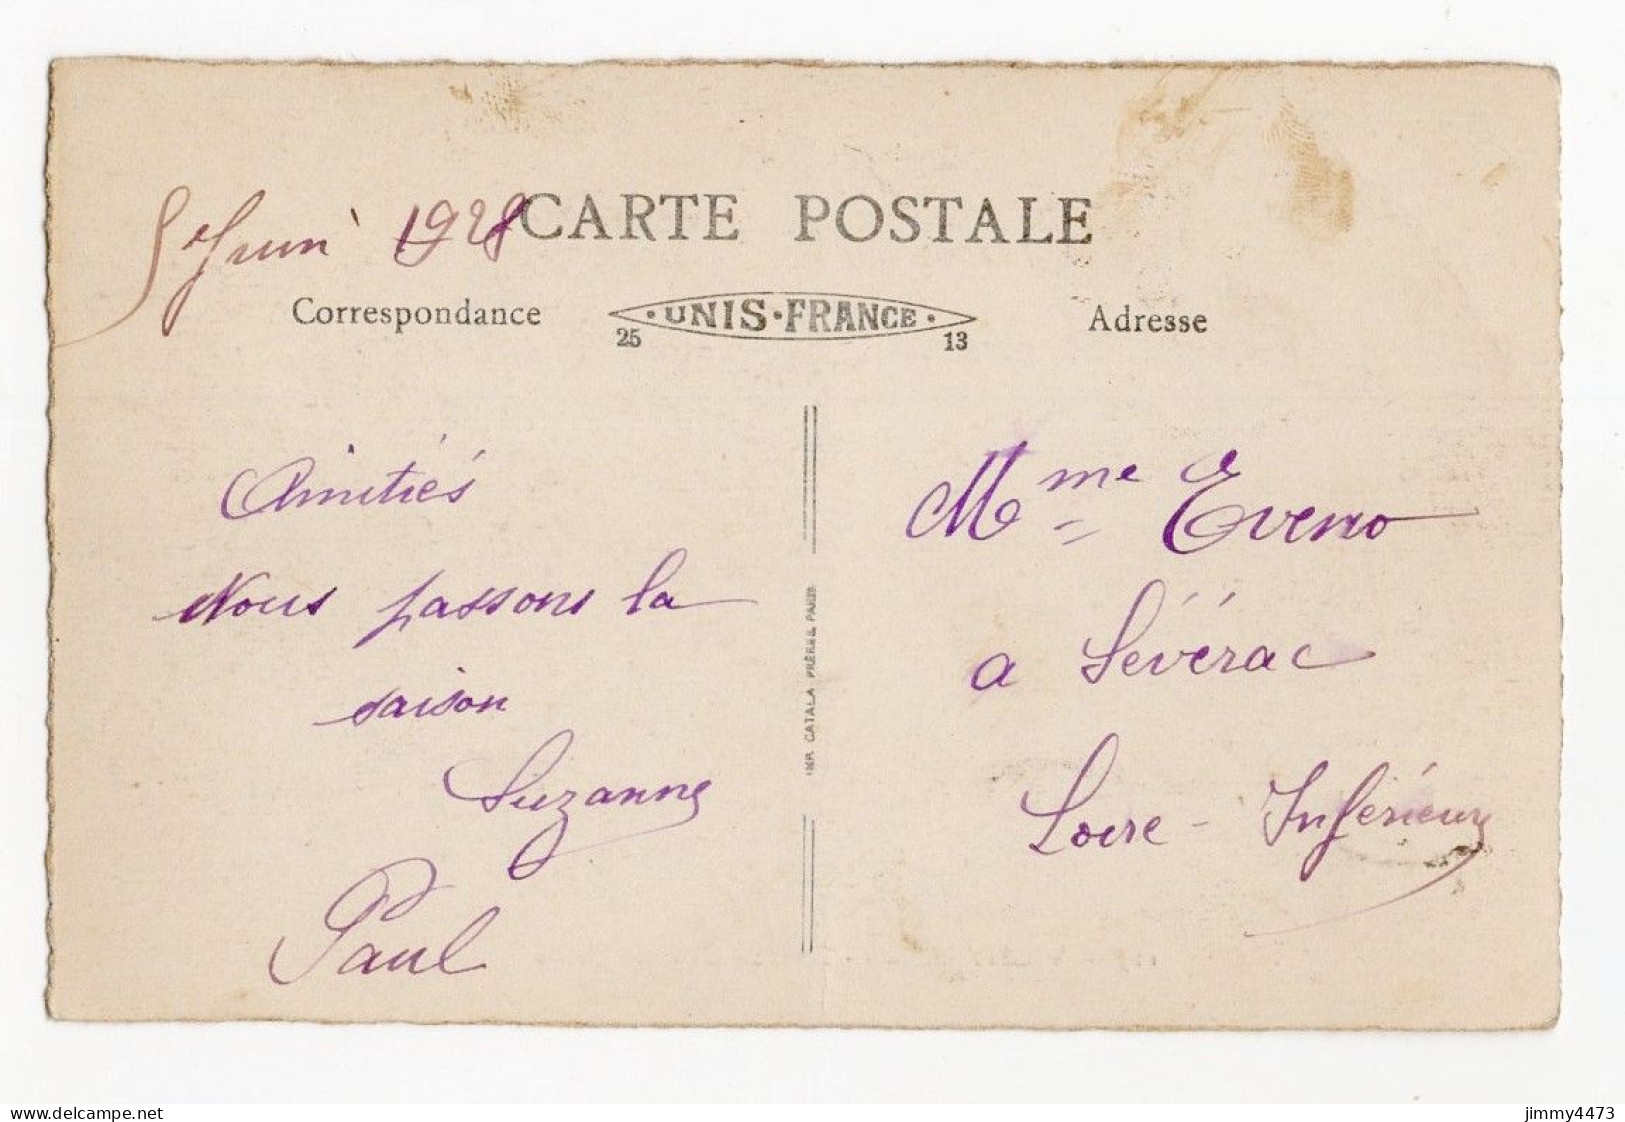 5 Juin 1928
CARTE POSTALE
Correspondance
· UNIS · FRANCE ·
25 13
Adresse
Amitiés
Nous passons la
saison
Suzanne
Paul
IMP. CATALA FRÈRES, PARIS
Mme Eveno
a Sévérac
Loire - Inférieure
www.delcampe.net
jimmy4473